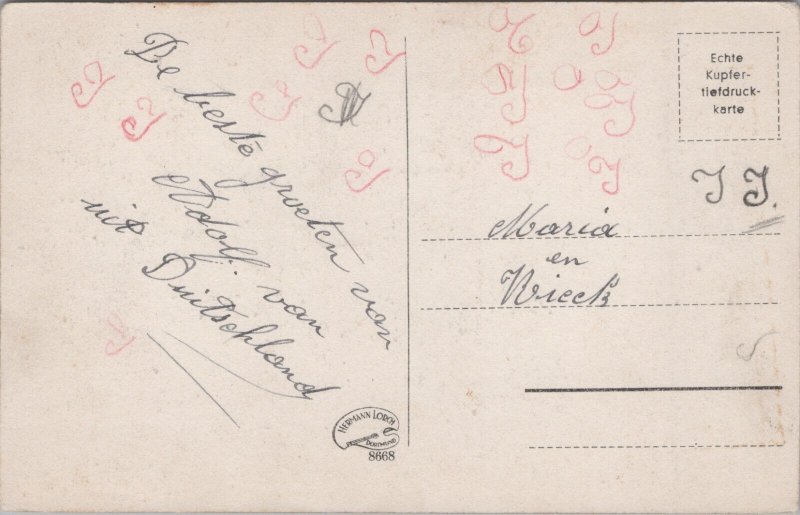 De beste groeten van
Adolf. van
uit Duitschland
Echte
Kupfer-
tiefdruck-
karte
J J.
Maria
en
Wieck
HERMANN LORCH
DORTMUND
8668